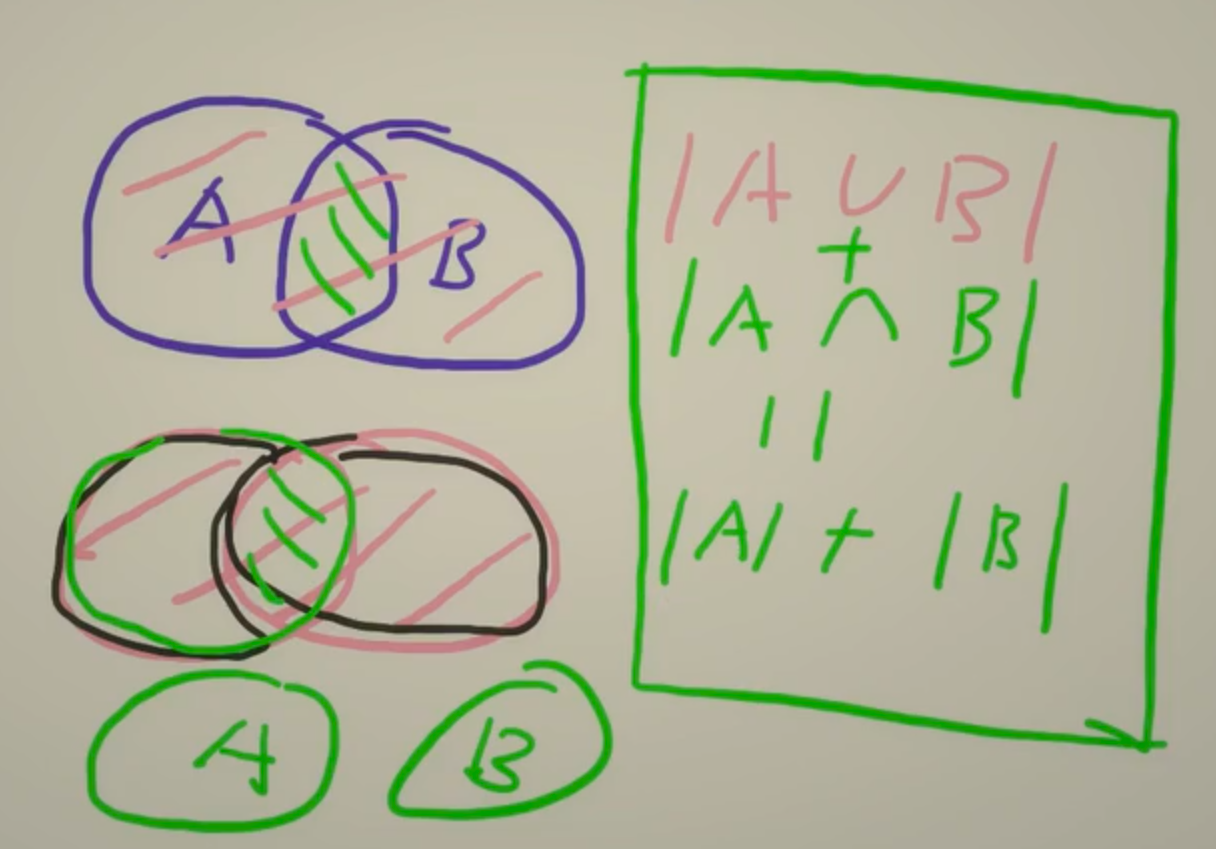 A B
|A ∪ B|
+
|A ∩ B|
||
|A| + |B|
A B